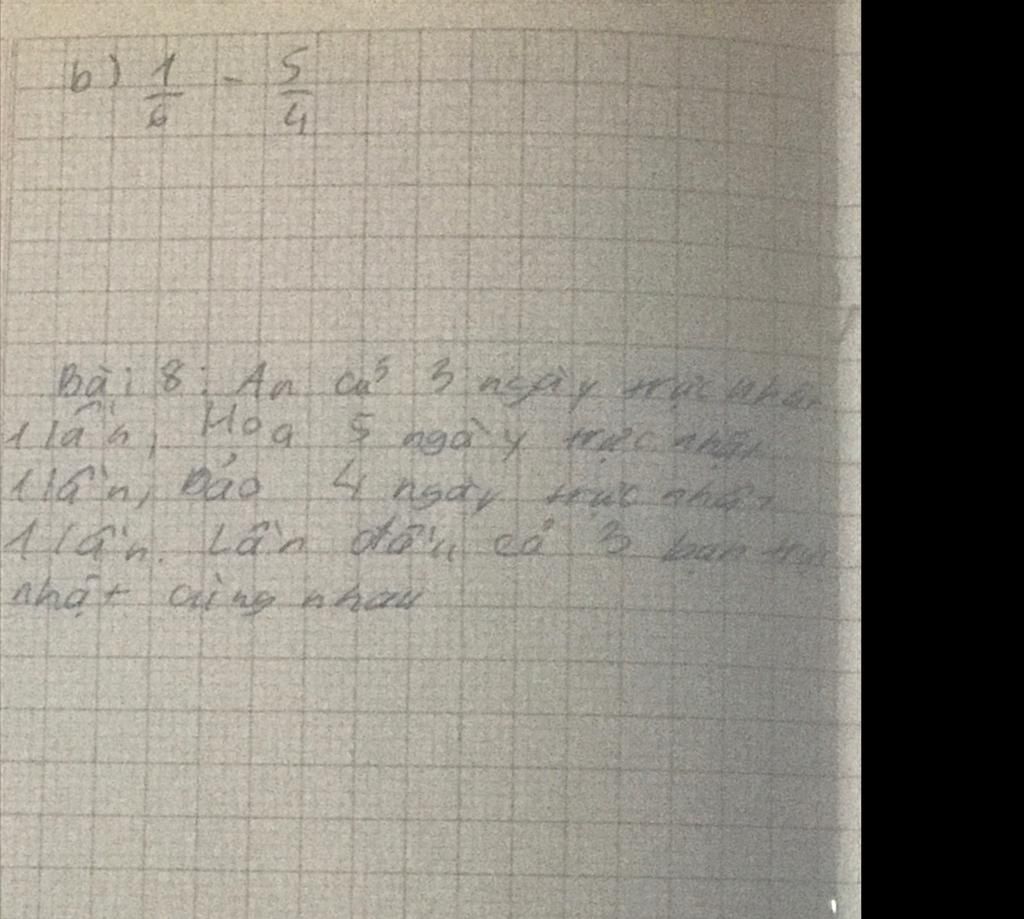 b) 1/6 - 5/4
Bài 8: An cứ 3 ngày trực nhật
1 lần, Hoa 5 ngày trực nhật
1 lần, Bảo 4 ngày trực nhật
1 lần. Lần đầu cả 3 bạn trực
nhật cùng nhau